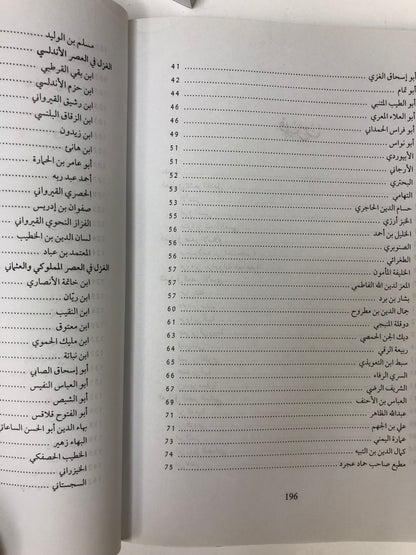 أبو إسحاق الغزي 41
أبو تمام 42
أبو الطيب المتنبي 46
أبو العلاء المعري 46
أبو فراس الحمداني 49
أبو نواس 51
الأبيوردي 51
الأرجاني 51
البحتري 52
التهامي 53
حسام الدين الحاجري 53
الخبز أرزي 55
الخليل بن أحمد 56
الصنوبري 56
الطغرائي 56
الخليفة المأمون 57
المعز لدين الله الفاطمي 57
بشار بن برد 57
جمال الدين بن مطروح 60
دوقلة المنبجي 61
ديك الجن الحمصي 62
ربيعة الرقي 64
سبط ابن التعويذي 65
السري الرفاء 66
الشريف الرضي 67
العباس بن الأحنف 69
عبدالله الظاهر 71
علي بن الجهم 71
عمارة اليمني 73
كمال الدين بن النبيه 74
مطيع صاحب حماد عجرد 75
196
مسلم بن الوليد
الغزل في العصر الأندلسي
ابن بقي القرطبي
ابن حزم الأندلسي
ابن رشيق القيرواني
ابن الزقاق البلنسي
ابن زيدون
ابن هانئ
أبو عامر بن الحمارة
أحمد عبد ربه
الحصري القيرواني
صفوان بن إدريس
القزاز النحوي القيرواني
لسان الدين بن الخطيب
المعتمد بن عباد
الغزل في العصر المملوكي والعثماني
ابن خاتمة الأنصاري
ابن ريّان
ابن النقيب
ابن معتوق
ابن مليك الحموي
ابن نباتة
أبو إسحاق الصابي
أبو العباس النفيس
أبو الشيص
أبو الفتوح قلاقس
بهاء الدين أبو الحسن الساعاتي
البهاء زهير
الخطيب الحصفكي
الخيزراني
السجستاني